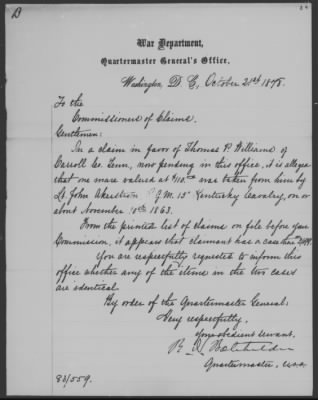 B
War Department,
Quartermaster General's Office,
Washington, D. C., October 21st, 1875.
To the
Commissioners of Claims.
Gentlemen:
In a claim in favor of Thomas P. Williams of
Carroll Co. Tenn, now pending in this office, it is alleged
that one mare valued at was taken from him by
Lt. John Q.M. 15" Kentucky Cavalry, on or
about November 10th 1863.
From the printed list of claims on file before your
Commission, it appears that claimant has a case there
You are respectfully requested to inform this
office whether any of the items in the two cases
are identical.
By order of the Quartermaster General:
Very respectfully,
Your obedient servant,
Quartermaster, U.S.A.
83/559.